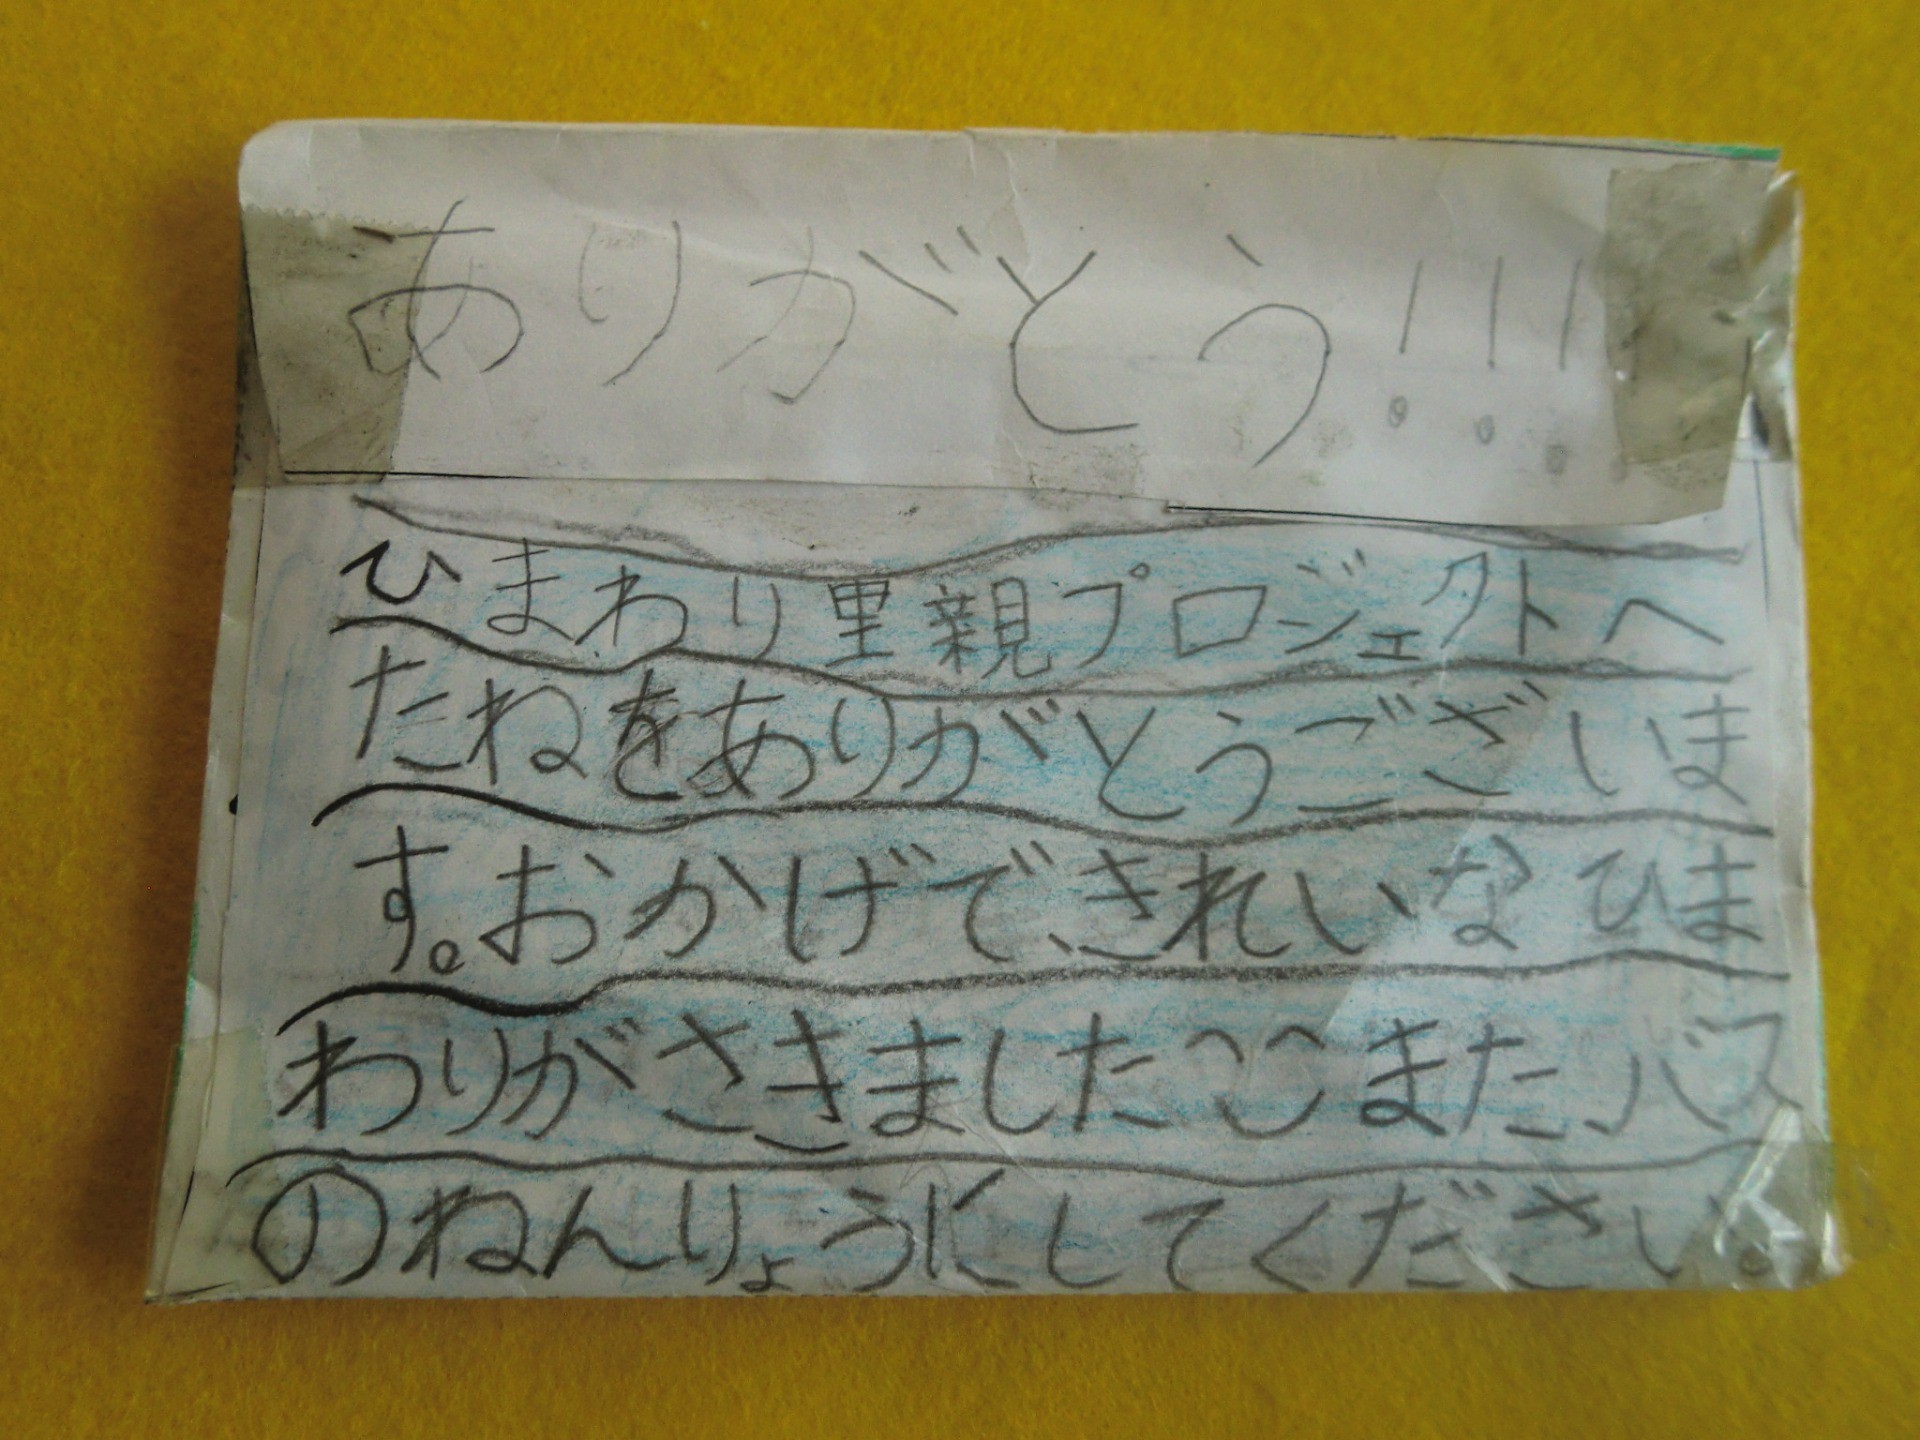 ありがとう!!!
ひまわり里親プロジェクトへ
たねをありがとうございま
す。おかげできれいなひま
わりがさきました^^また、バス
のねんりょうにしてください。